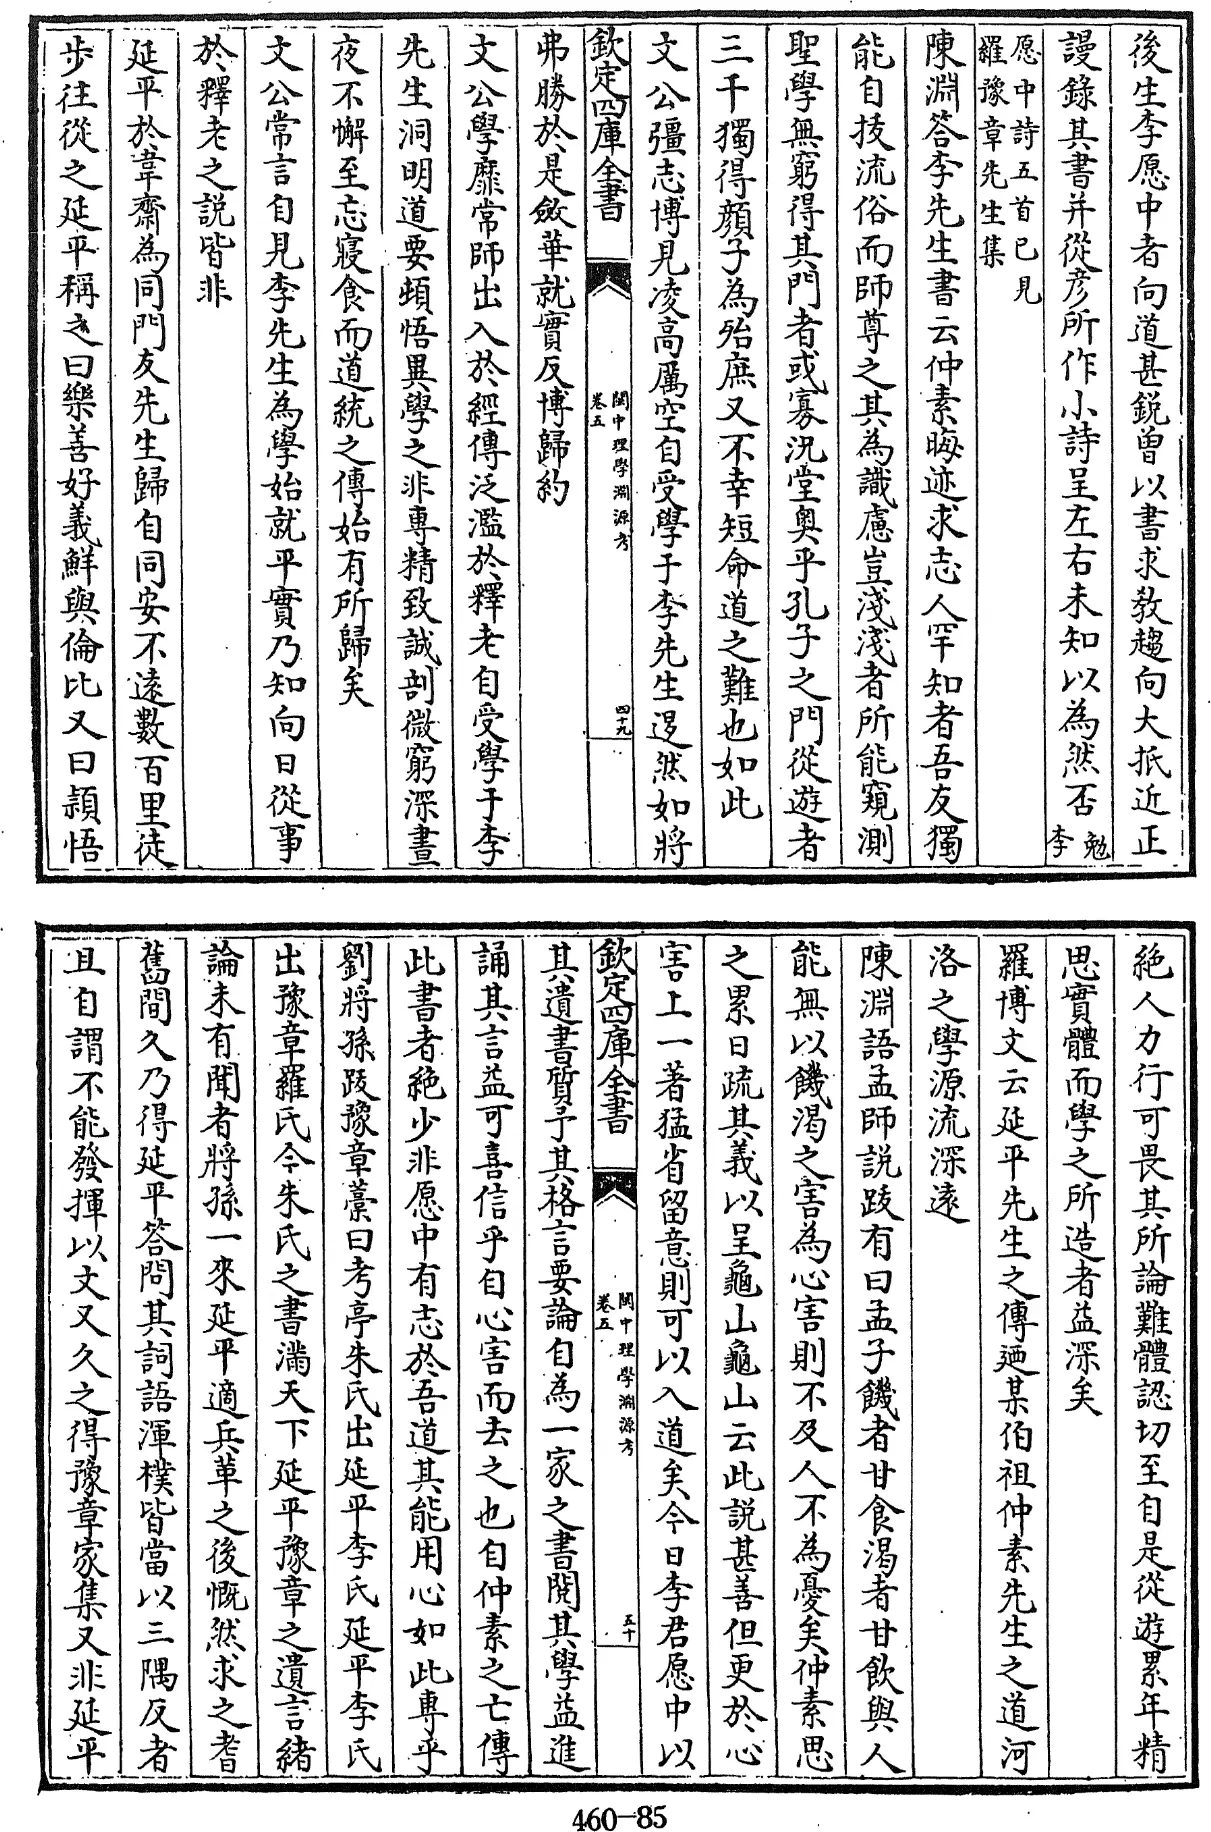 後生李愿中者向道甚銳曾以書求教趨向大抵近正
謾錄其書并從彥所作小詩呈左右未知以為然否勉李
愿中詩五首已見
羅豫章先生集
陳淵答李先生書云仲素晦迹求志人罕知者吾友獨
能自拔流俗而師尊之其為識慮豈淺淺者所能窺測
聖學無窮得其門者或寡況堂奧乎孔子之門從遊者
三千獨得顏子為殆庶又不幸短命道之難也如此
文公彊志博見凌高厲空自受學于李先生退然如將
欽定四庫全書
閩中理學淵源考
卷五
四十九
弗勝於是斂華就實反博歸約
文公學靡常師出入於經傳泛濫於釋老自受學于李
先生洞明道要頓悟異學之非專精致誠剖微窮深晝
夜不懈至忘寢食而道統之傳始有所歸矣
文公常言自見李先生為學始就平實乃知向日從事
於釋老之説皆非
延平於韋齋為同門友先生歸自同安不遠數百里徒
步往從之延平稱之曰樂善好義鮮與倫比又曰頴悟
絶人力行可畏其所論難體認切至自是從遊累年精
思實體而學之所造者益深矣
羅博文云延平先生之傳廼某伯祖仲素先生之道河
洛之學源流深遠
陳淵語孟師説跋有曰孟子饑者甘食渴者甘飲與人
能無以饑渴之害為心害則不及人不為憂矣仲素思
之累日疏其義以呈龜山龜山云此説甚善但更於心
害上一著猛省留意則可以入道矣今日李君愿中以
欽定四庫全書
閩中理學淵源考
卷五
五十
其遺書質予其格言要論自為一家之書閱其學益進
誦其言益可喜信乎自心害而去之也自仲素之亡傳
此書者絶少非愿中有志於吾道其能用心如此專乎
劉將孫跋豫章藳曰考亭朱氏出延平李氏延平李氏
出豫章羅氏今朱氏之書滿天下延平豫章之遺言緒
論未有聞者將孫一來延平適兵革之後慨然求之耆
舊間久乃得延平答問其詞語渾樸皆當以三隅反者
且自謂不能發揮以文又久之得豫章家集又非延平
460-85